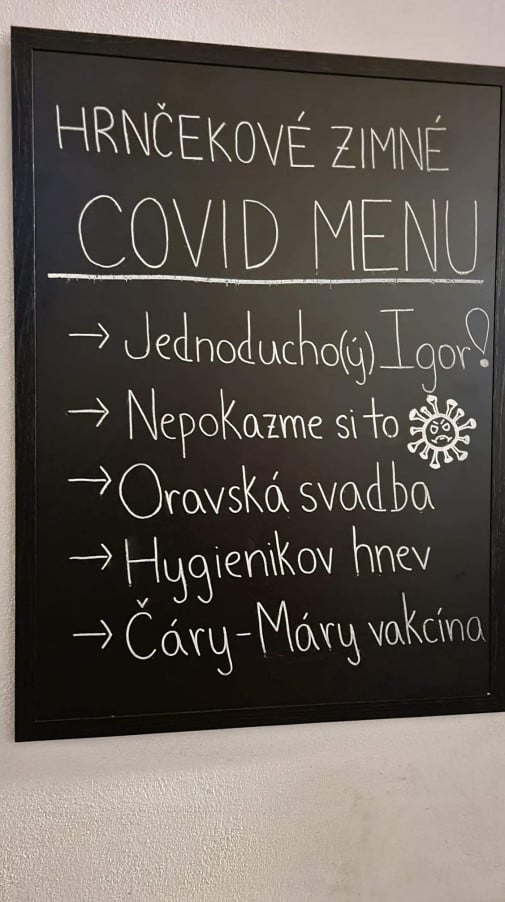 HRNČEKOVÉ ZIMNÉ
COVID MENU
→ Jednoducho(ý) Igor!
→ Nepokazme si to
→ Oravská svadba
→ Hygienikov hnev
→ Čáry-Máry vakcína